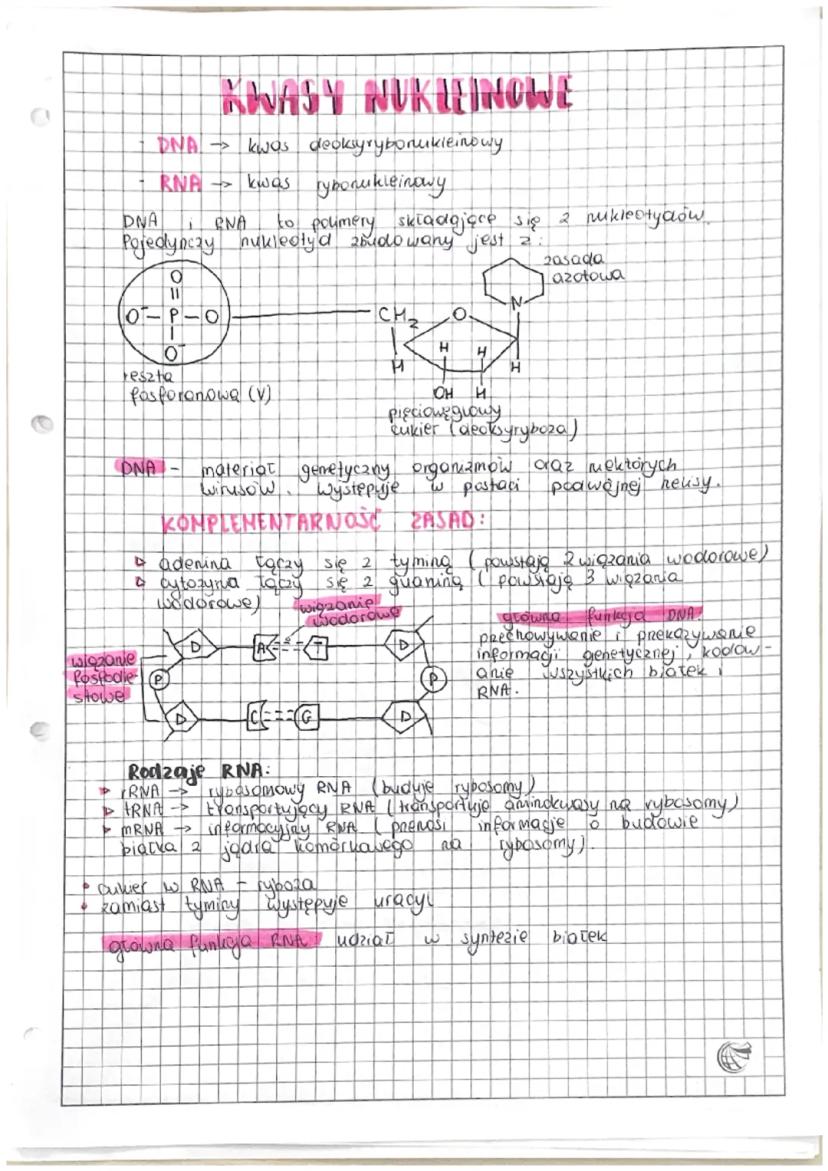 KWASY NUKLEINOWE
- DNA → kwas deoksyrybonukleinowy
- RNA → kwas rybonukleinowy
DNA i RNA to polimery składające się z nukleotydów.
Pojedynczy nukleotyd zbudowany jest z:
zasada
azotowa
O
O⁻ - P - O
O⁻
CH₂
O
N
H
H
H
H
OH
H
reszta
fosforanowa (V)
pięciowęglowy
cukier (deoksyryboza)
DNA - materiał genetyczny organizmów oraz niektórych
wirusów. Występuje w postaci podwójnej helisy.
KOMPLEMENTARNOŚĆ ZASAD:
▷ adenina łączy się z tyminą (powstają 2 wiązania wodorowe)
▷ cytozyna łączy się z guaniną (powstają 3 wiązania
wodorowe)
wiązanie
wodorowe
D
A
T
D
wiązanie
fosfodie-
strowe
P
P
D
C
G
D
główna funkcja DNA:
przechowywanie i przekazywanie
informacji genetycznej, kodow-
anie wszystkich białek i
RNA.
Rodzaje RNA:
▷ rRNA → rybosomowy RNA (buduje rybosomy)
▷ tRNA → transportujący RNA (transportuje aminokwasy na rybosomy)
▷ mRNA → informacyjny RNA (przenosi informacje o budowie
białka z jądra komórkowego na rybosomy).
• cukier w RNA - ryboza
• zamiast tyminy występuje uracyl
główna funkcja RNA: udział w syntezie białek